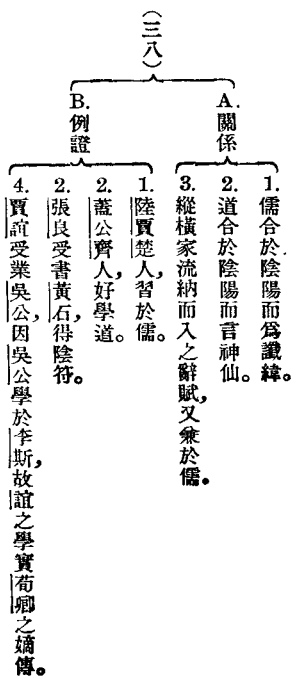 (三八)
A.關係
1.儒合於陰陽而爲讖緯。
2.道合於陰陽而言神仙。
3.縱橫家流納而入之辭賦，又兼於儒。
B.例證
1.陸賈楚人，習於儒。
2.蓋公齊人，好學道。
2.張良受書黃石，得陰符。
4.賈誼受業吳公，因吳公學於李斯，故誼之學實荀卿之嫡傳。